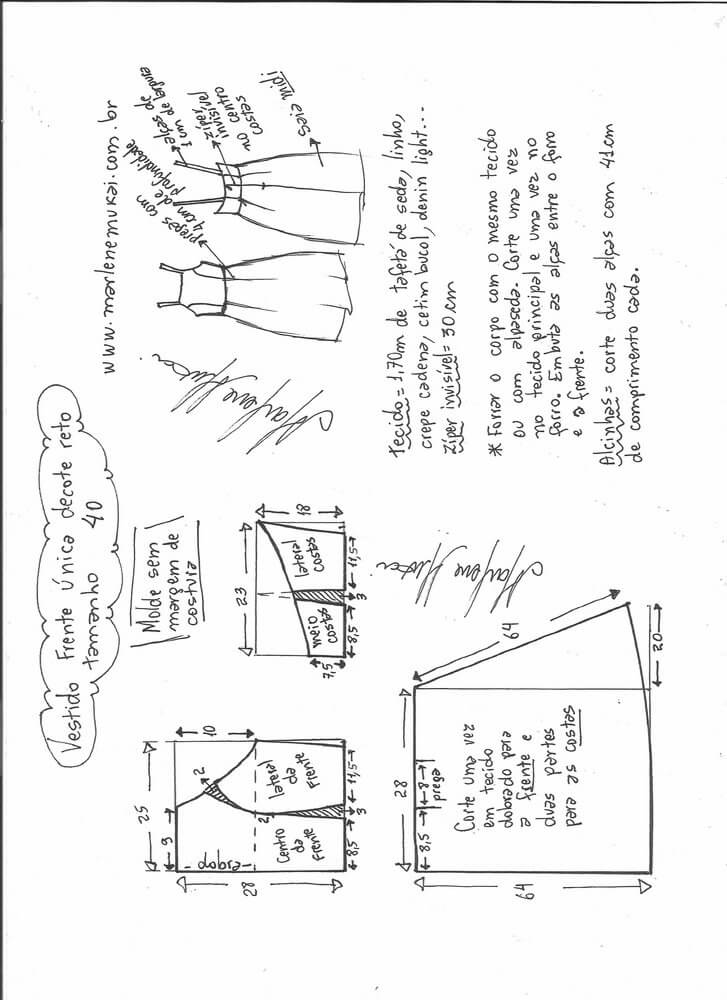 Vestido Frente única decote reto
tamanho 40
www.marlenemukai.com.br
Molde sem
margem de
costura
pregas com
4cm de
profundidade
alças de
1 cm de largura
zíper
invisível
no centro
costas
saia midi
25
9
10
2
28
dobra
2
Centro
da
Frente
lateral
da
Frente
8,5
3
11,5
23
18
7,5
meio
costas
lateral
costas
8,5
3
11,5
28
64
8,5
8
prega
64
20
Corte uma vez
em tecido
dobrado para
a frente e
duas partes
para as costas
Tecido = 1,70m de tafetá de seda, linho,
crepe cadena, cetim bucol, denin light...
Zíper invisível = 30 cm
* Forrar o corpo com o mesmo tecido
ou com alpaseda. Corte uma vez
no tecido principal e uma vez no
forro. Embuta as alças entre o forro
e a frente.
Alcinhas = corte duas alças com 41cm
de comprimento cada.
Marlene Mukai
Marlene Mukai